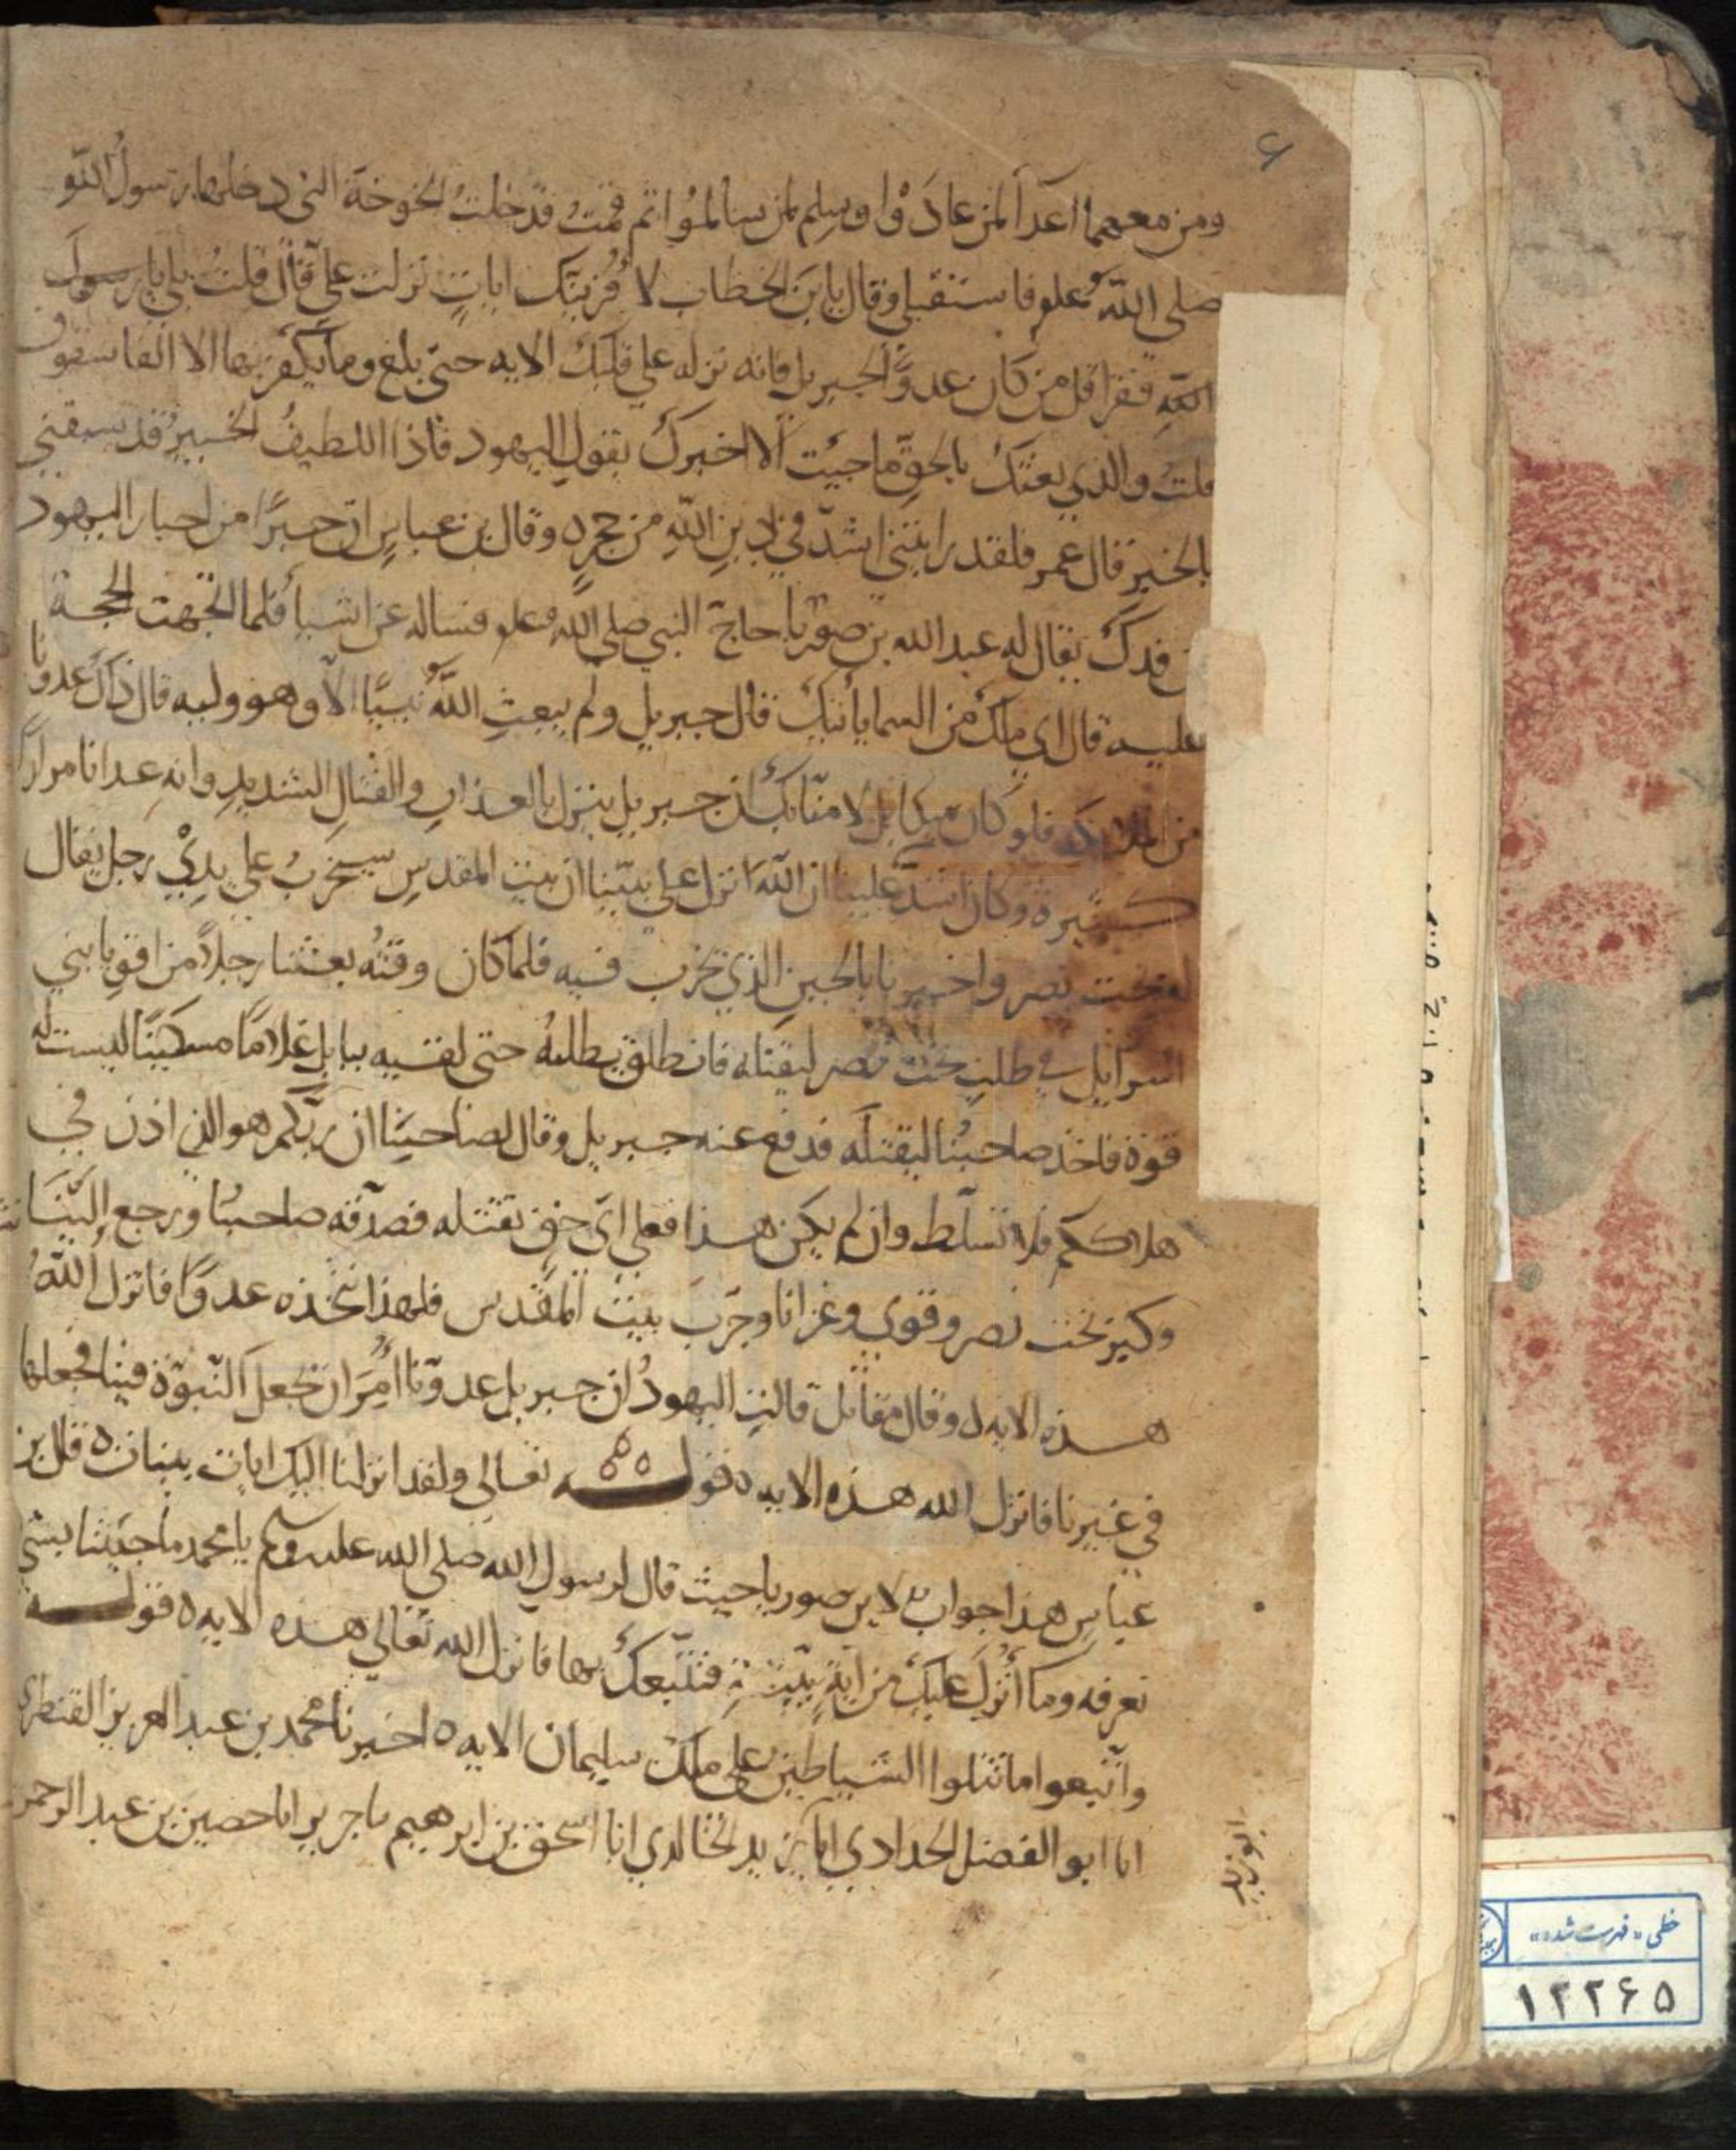 ۶
ومن معهما اعدآ لمن عادَوْا وسِلم لمن سالموُا ثم قمتُ فدخلتُ الخوخة التي دخلها رسولُ اللهِ
صلى اللهُ علم فاستقبلي وقال يابنَ الخطاب لا قُرئنّك اياتٍ نزلت عليّ قال قلتُ بلى يا رسولَ
اللهِ فقرا قل من كان عدوًّا لجبريل فانه نزله علي قلبك الايه حتى بلغ وما يكفر بها الا الفاسقون
قلتُ والذي بعثك بالحقِ ما جيت الا اخبرك بقولِ اليهود فاذا اللطيفُ الخبيرُ قد سبقني
بالخبر قال عمر فلقد رايتني اشدّ في دينِ اللهِ من حجرٍ ٥ وقال بن عباسٍ ان حبرًا من احبار اليهود
من فدك يقال له عبد الله بن صوريا حاجّ النبي صلى اللهُ علم فساله عن اشيا فلما اتجهت الحجة
عليه قال اي ملك من السما يأتيك قال جبريل ولم يبعثِ اللهُ نبيًّا الّا وهو وليه قال ذاك عدوُنا
من الملايكه فلو كان ميكايل لامنّا بك ان جبريل ينزل بالعذابِ والقتالِ الشديدِ وانه عدانا مرارًا
كثيرة وكان اشدّ علينا ان اللهَ انزل علي نبيّنا ان بيت المقدسِ سيخربُ على يديْ رجل يقال
له بخت نصر واخبرنا بالحينِ الذي يخرب فيه فلما كان وقتُه بعثنا رجلاً من اقويا بني
اسرايل في طلبِ بخت نصر ليقتله فانطلق يطلبهُ حتى لقيه ببابل غلامًا مسكينًا ليست له
قوة فاخذ صاحبُنا ليقتلَه فدفع عنه جبريل وقال لصاحبِنا ان ربّكم هو الذي اذن في
هلاككم فلا تسلّط وان لم يكن هذا فعلي اي حق تقتله فصدّقه صاحبُنا ورجع اليّنا
وكبر بخت نصر وقوي وغزانا وخرّبَ بيتَ المقدس فلهذا نتخذه عدوًّا فانزل اللهُ
هذه الايه ٥ وقال مقاتل قالتِ اليهودُ ان جبريل عدوّنا اُمِرَ ان يجعلَ النّبوّة فينا فجعلها
في غيرنا فانزل الله هذه الايه ٥ قوله تعالى ولقد انزلنا اليك ايات بينات ٥ قال بن
عباسِ هذا جوابٌ لابن صوريا حيث قال لرسولِ الله صلى الله عليه وسلم يا محمد ما جيتنا بشي
نعرفه وما اُنزل عليك من ايةٍ بيّنةٍ فنتّبعك بها فانزل الله تعالي هذه الايه ٥ قوله
واتّبعوا ما تتلوا الشياطين على ملك سليمان الايه ٥ اخبرنا محمد بن عبد العزيز القنطري
انا ابو الفضل الحدادي انا يزيد الخالدي انا اسحق بن ابرهيم نا جرير انا حصين بن عبد الرحمن
ابو زيد
خطی «فهرست شده»
۱۲۲۶۵